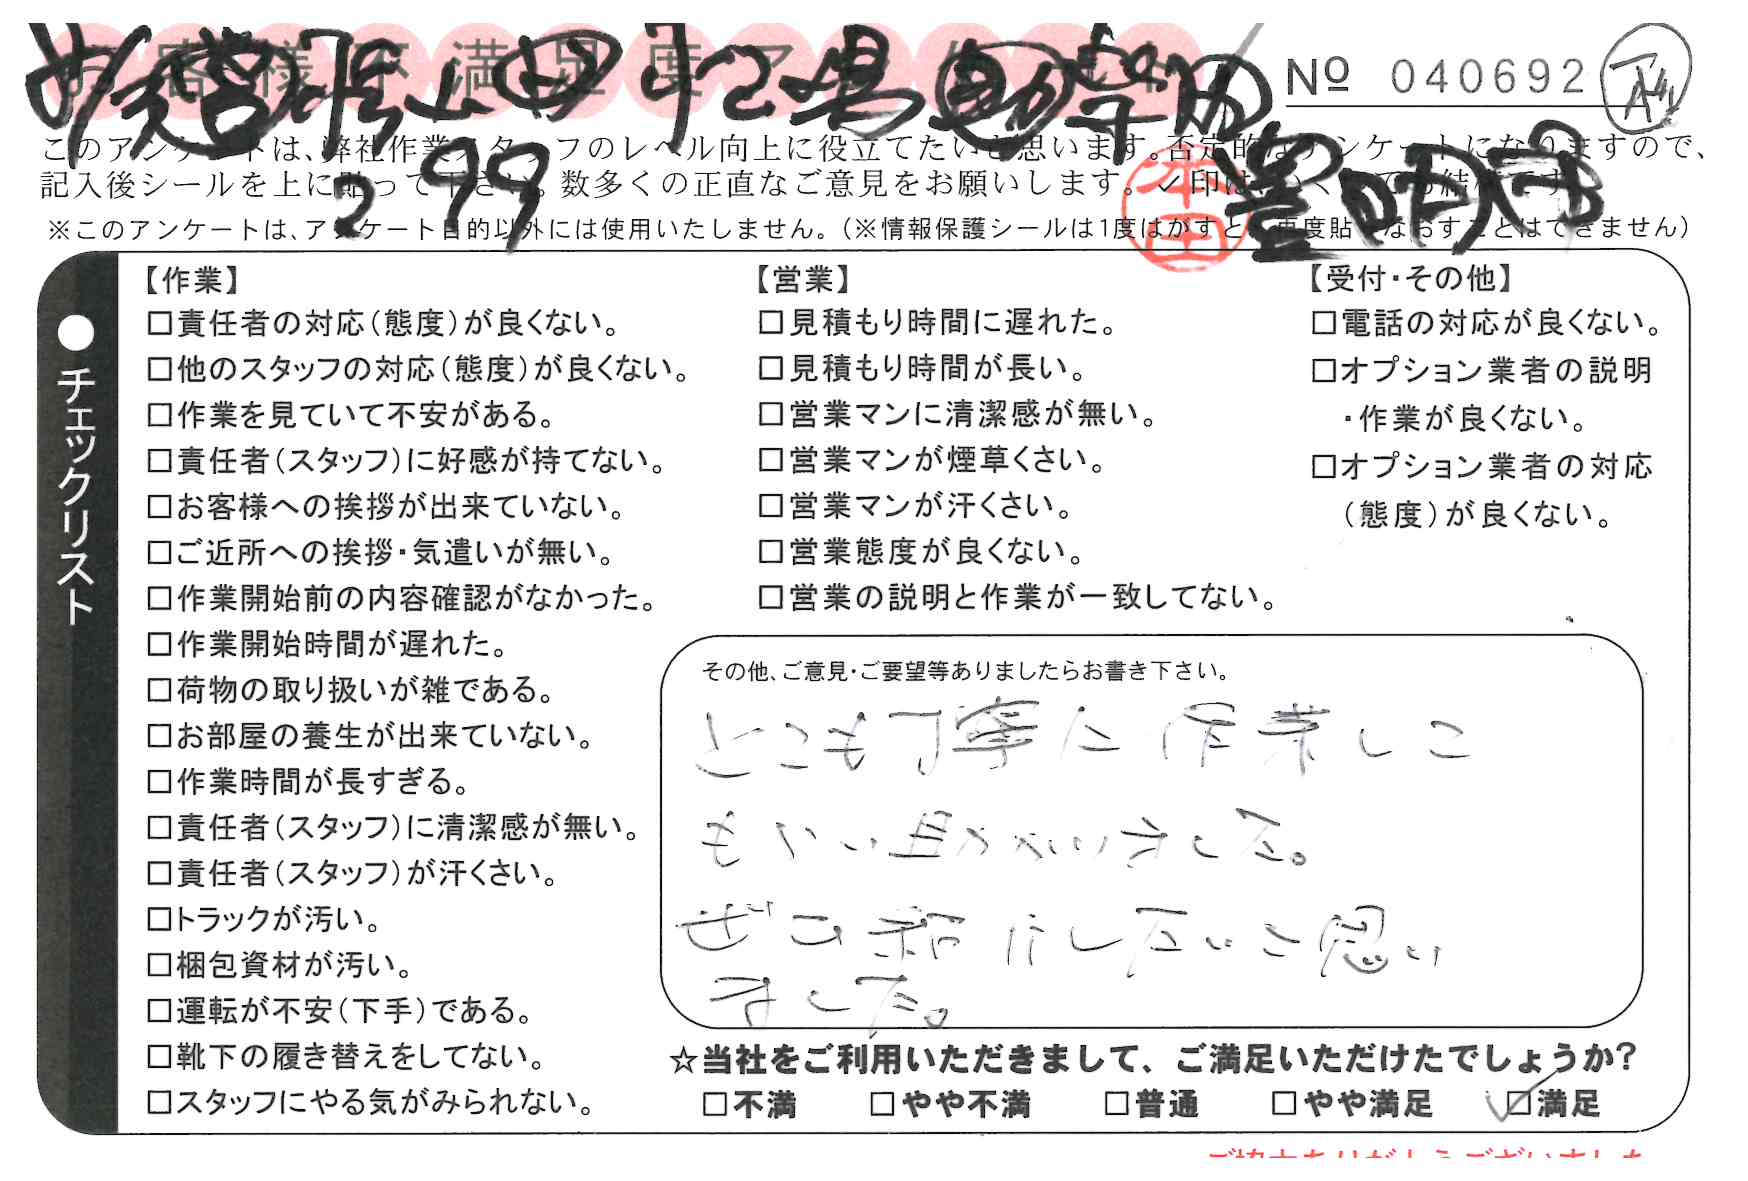 お客様不満足度アンケート
№ 040692
299
このアンケートは、弊社作業スタッフのレベル向上に役立てたいと思います。否定的なアンケートになりますので、
記入後シールを上に貼って下さい。数多くの正直なご意見をお願いします。✓印はいくつでも結構です。
※このアンケートは、アンケート目的以外には使用いたしません。（※情報保護シールは1度はがすと、再度貼りなおすことはできません）
本田
●チェックリスト
【作業】
□責任者の対応（態度）が良くない。
□他のスタッフの対応（態度）が良くない。
□作業を見ていて不安がある。
□責任者（スタッフ）に好感が持てない。
□お客様への挨拶が出来ていない。
□ご近所への挨拶・気遣いが無い。
□作業開始前の内容確認がなかった。
□作業開始時間が遅れた。
□荷物の取り扱いが雑である。
□お部屋の養生が出来ていない。
□作業時間が長すぎる。
□責任者（スタッフ）に清潔感が無い。
□責任者（スタッフ）が汗くさい。
□トラックが汚い。
□梱包資材が汚い。
□運転が不安（下手）である。
□靴下の履き替えをしてない。
□スタッフにやる気がみられない。
【営業】
□見積もり時間に遅れた。
□見積もり時間が長い。
□営業マンに清潔感が無い。
□営業マンが煙草くさい。
□営業マンが汗くさい。
□営業態度が良くない。
□営業の説明と作業が一致してない。
【受付・その他】
□電話の対応が良くない。
□オプション業者の説明
・作業が良くない。
□オプション業者の対応
（態度）が良くない。
その他、ご意見・ご要望等ありましたらお書き下さい。
とても丁寧に作業して
もらい助かりました。
ぜひ紹介したいと思い
ました。
☆当社をご利用いただきまして、ご満足いただけたでしょうか?
□不満 □やや不満 □普通 □やや満足 ☑満足
ご協力ありがとうございました